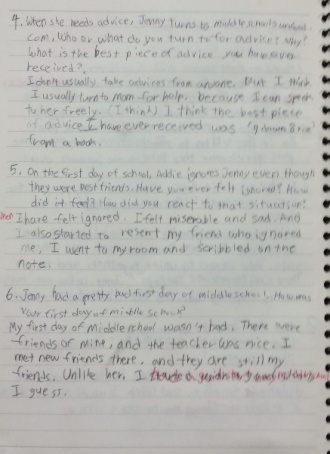 4. When she needs advice, Jenny turns to middleschoolsurvival.
com. Who or what do you turn to for advice? Why?
What is the best piece of advice you have ever
received?
I don't usually take advices from anyone. But I think
I usually turn to mom for help, because I can speak
to her freely. (I think) I think the best piece
of advice I have ever received was
from a book.
5. On the first day of school, Addie ignores Jenny even though
they were best friends. Have you ever felt ignored? How
did it feel? How did you react to that situation?
I have felt ignored. I felt miserable and sad. And
I also started to resent my friend who ignored
me, I went to my room and scribbled on the
note.
6. Jenny had a pretty bad first day of middle school. How was
your first day of middle school?
My first day of middle school wasn't bad. There were
friends of mine, and the teacher was nice. I
met new friends there, and they are still my
friends. Unlike her, I
I guess.